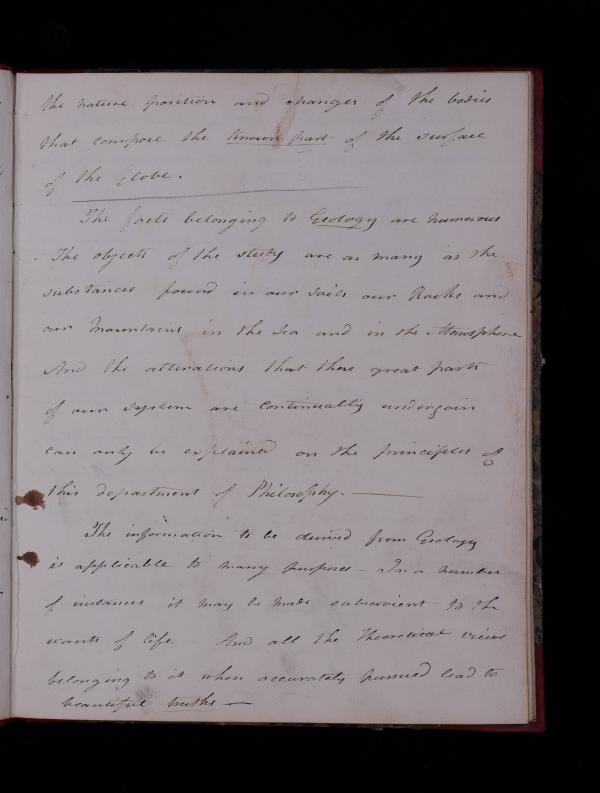 the nature position and changes of the bodies
that compose the known part of the surface
of the Globe.
The facts belonging to Geology are numerous
The objects of the study are as many as the
substances found in our soils our Rocks and
our Mountains in the Sea and in the Atmosphere
And the alterations that these great parts
of our system are continually undergoin
can only be explained on the principles of
this department of Philosophy. —
The information to be derived from Geology
is applicable to many purposes - In a number
of instances it may be made subservient to the
wants of life And all the theoretical views
belonging to it when accurately pursued lead to
beautiful truths —